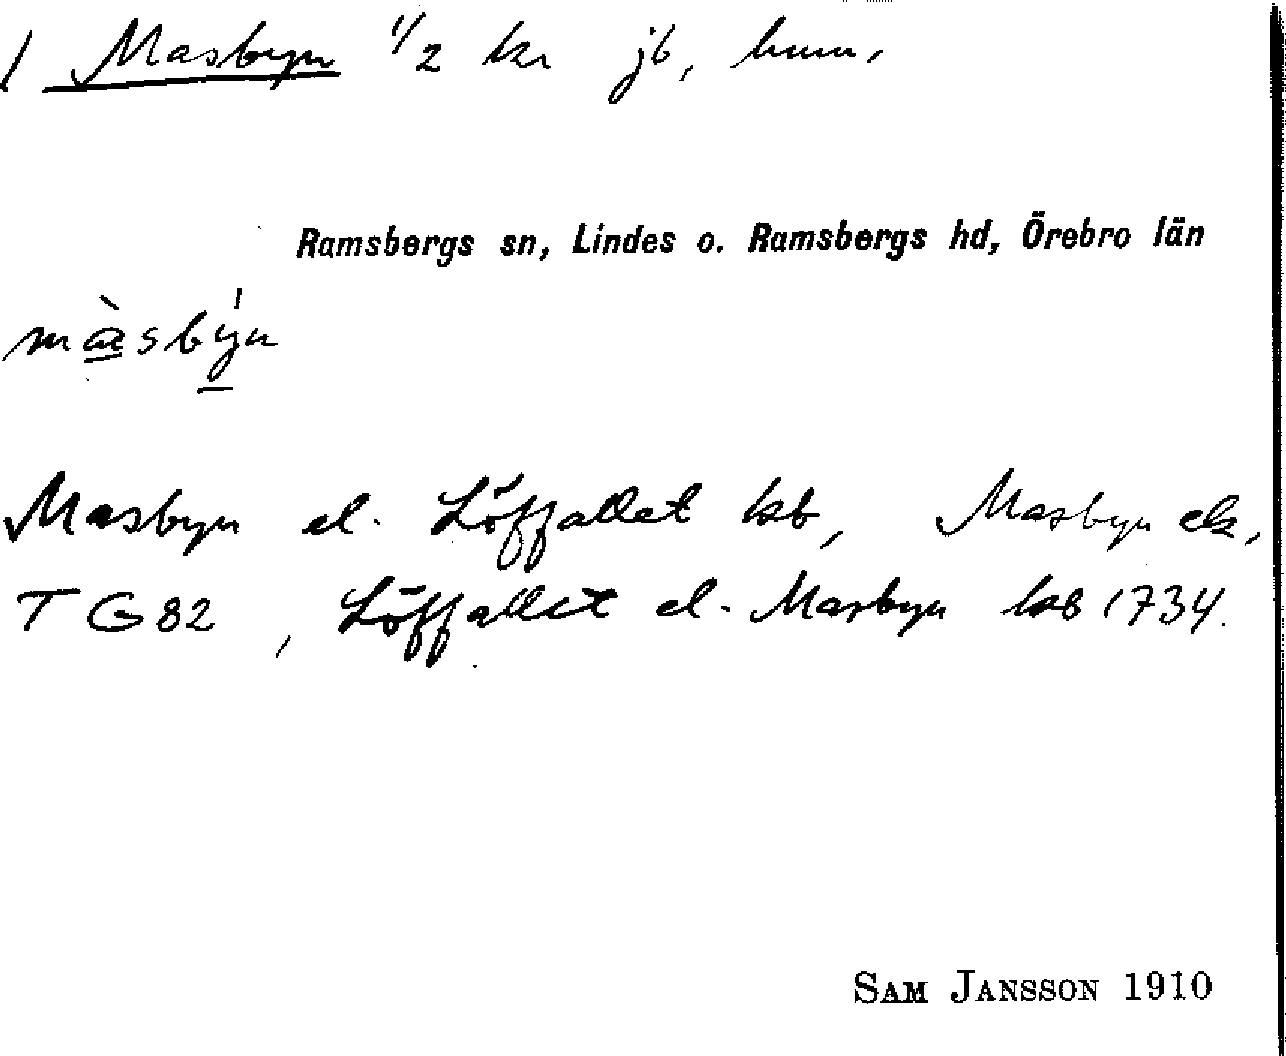 / Masbyn 1/2 kr jb, hum.
Ramsbergs sn, Lindes o. Ramsbergs hd, Örebro län
màsby̍n
Masbyn el. Löffallet kb, Masbyn ek,
T G82, Löffallet el. Masbyn kb 1734.
SAM JANSSON 1910